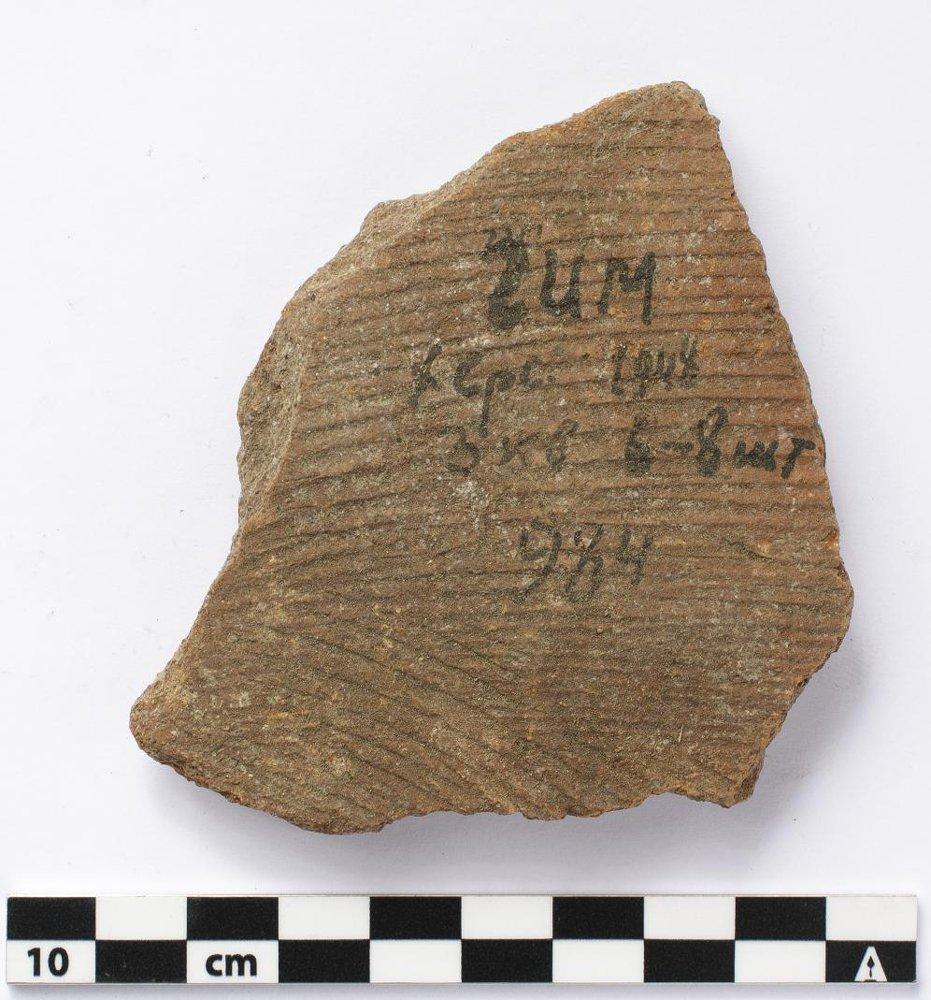 ХИМ
Херс. 1948
3 кв 6-8 шт
984
10 cm